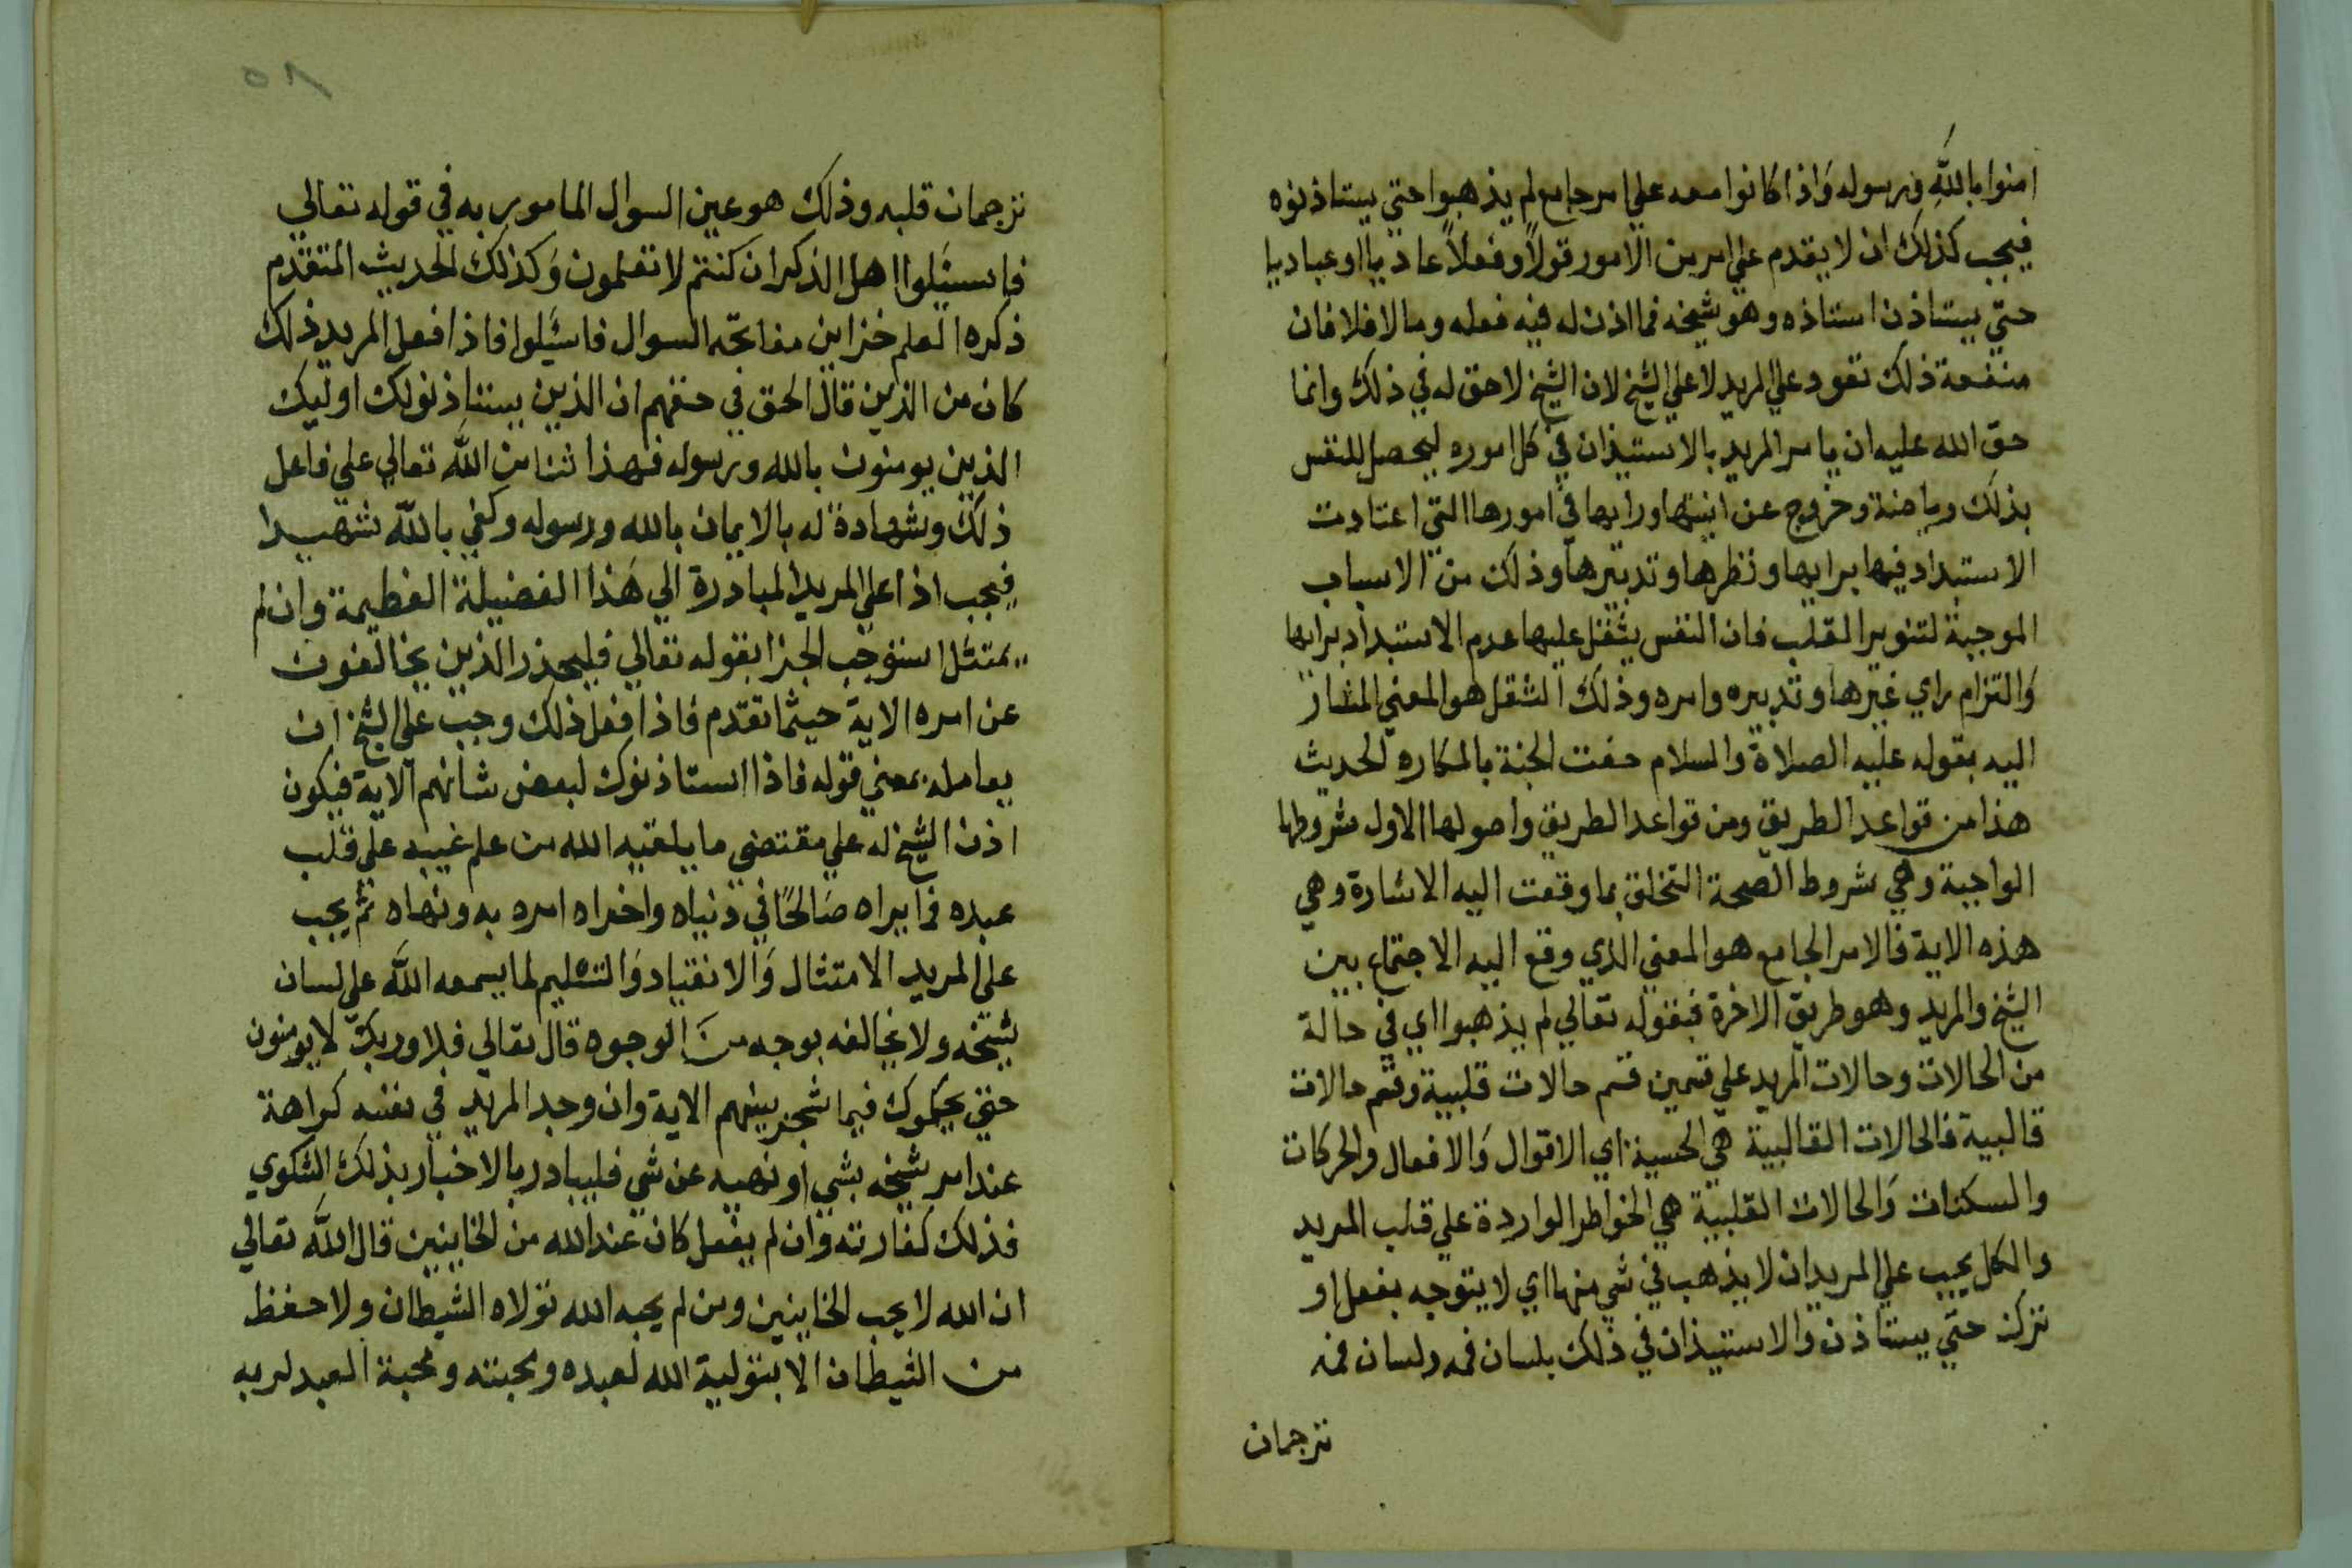 امنوا بالله ورسوله وَاذا كانوا معه علي امر جامع لم يذهبوا حتي يستاذنوه
فيجب كذلك ان لا يقدم علي امر من الامور قولاً وفعلاً عاديا او عباديا
حتّي يستاذن استاذه وهو شيخه فما اذن له فيه فعله وما لا فلا فان
منفعة ذلك تعود علي المريد لا علي الشيخ لان الشيخ لا حق له في ذلك وانما
حق الله عليه ان يامر المريد بالاستيذان في كل اموره ليحصل للنفس
بذلك رياضة وخروج عن انيتها ورايها في امورها التي اعتادت
الاستبداد فيها برايها ونظرها وتدبيرها وذلك من الاسباب
الموجبة لتنوير القلب فان النفس يثقل عليها عدم الاستبداد برايها
وَالتزام راي غيرها وتدبيره وامره وذلك الثقل هو المعني المشار
اليه بقوله عليه الصلاة والسلام حفت الجنة بالمكاره الحديث
هذا من قواعد الطريق ومن قواعد الطريق واصولها الاول شروطها
الواجبة وهي شروط الصحة التخلق بما وقعت اليه الاشارة وهي
هذه الاية فالامر الجامع هو المعني الذي وقع اليه الاجتماع بين
الشيخ والمريد وهو طريق الاخرة فبقوله تعالي لم يذهبوا اي في حالة
من الحالات وحالات المريد علي قسمين قسم حالات قلبية وقسم حالات
قالبية فالحالات القالبية هي الحسية اي الاقوال وَالافعال والحركات
والسكنات وَالحالات القلبية هي الخواطر الواردة علي قلب المريد
والكل يجب علي المريد ان لا يذهب في شي منها اي لا يتوجه بفعل او
ترك حتّي يستاذن والاستيذان في ذلك بلسان فمه ولسان فمه
ترجمان
٥٨
ترجمان قلبه وذلك هو عين السوال المامور به في قوله تعالي
فاسئَلوا اهل الذكر ان كنتم لا تعلمون وَكذلك الحديث المتقدم
ذكره العلم خزاين مفاتحّه السوال فاسئَلوا فاذا فعل المريد ذلك
كان من الذين قال الحق في حقهم ان الذين يستاذنونك اوليك
الذين يومنون بالله ورسوله فهذا ثنا من الله تعالي علي فاعل
ذلك وشهادة له بالايمان بالله ورسوله وكفي بالله شهيدا
فيجب اذا علي المريد المبادرة الي هَذا الفضيلة العظيمة وان لم
يمتثل استوجب الجزا بقوله تعالي فليحذر الذين يخالفون
عن امره الاية حيثما تقدم فاذا فعل ذلك وجب علي الشيخ ان
يعامله بمعني قوله فاذا استاذنوك لبعض شانهم الاية فيكون
اذن الشيخ له علي مقتضي ما يلقيه الله من علم غيبه علي قلب
عبده فما يراه صَالحًا في دنياه واخراه امره به ونهاه ثم يجب
علي المريد الامتثال وَالانقياد وَالتسليم لما يسمعه الله علي لسان
شيخه ولا يخالفه بوجه منَ الوجوه قال تعالي فلا وربك لا يومنون
حتي يحكموك فيما شجر بينهم الاية وان وجد المريد في نفسه كراهة
عند امر شيخه بشي او نهيه عن شي فليبادر بالاخبار بذلك الشكوي
فذلك كفارته وان لم يفعل كان عند الله من الخاينين قال الله تعالي
ان الله لا يحب الخاينين ومن لم يحبه الله تولاه الشيطان ولا حفظ
من الشيطان الا بتولية الله لعبده ومحبته ومحبة العبد لربه